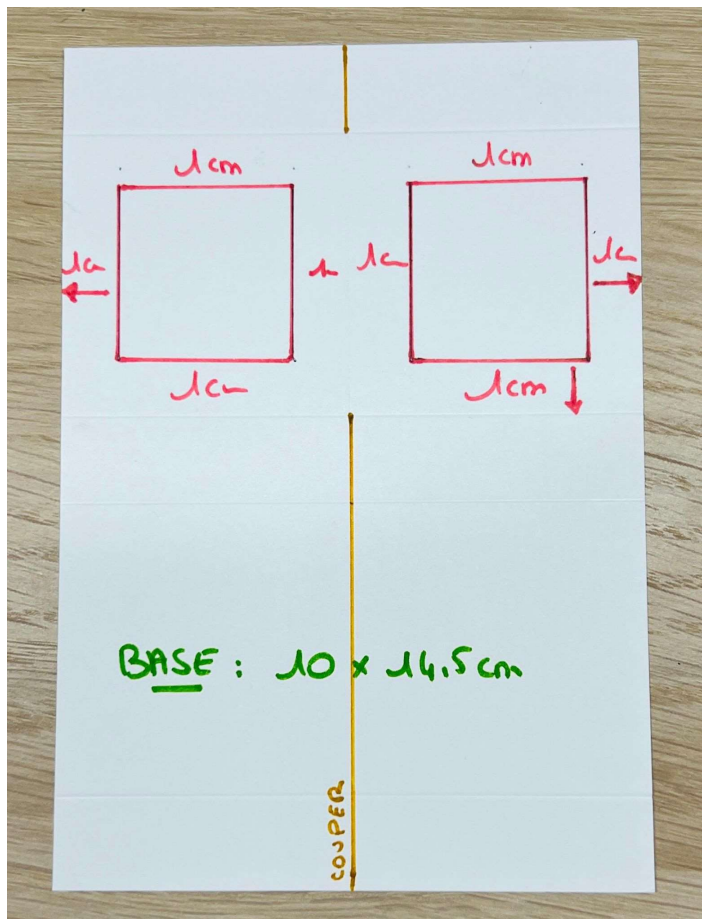 1cm
1cm
1c
1c
1c
1c
1cm
BASE : 10 x 14.5 cm
COUPER